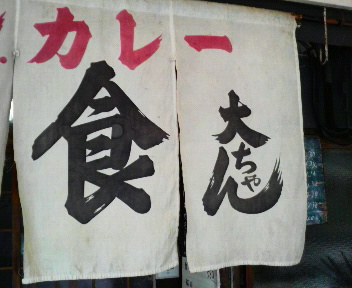 カレー
食
大ちゃん